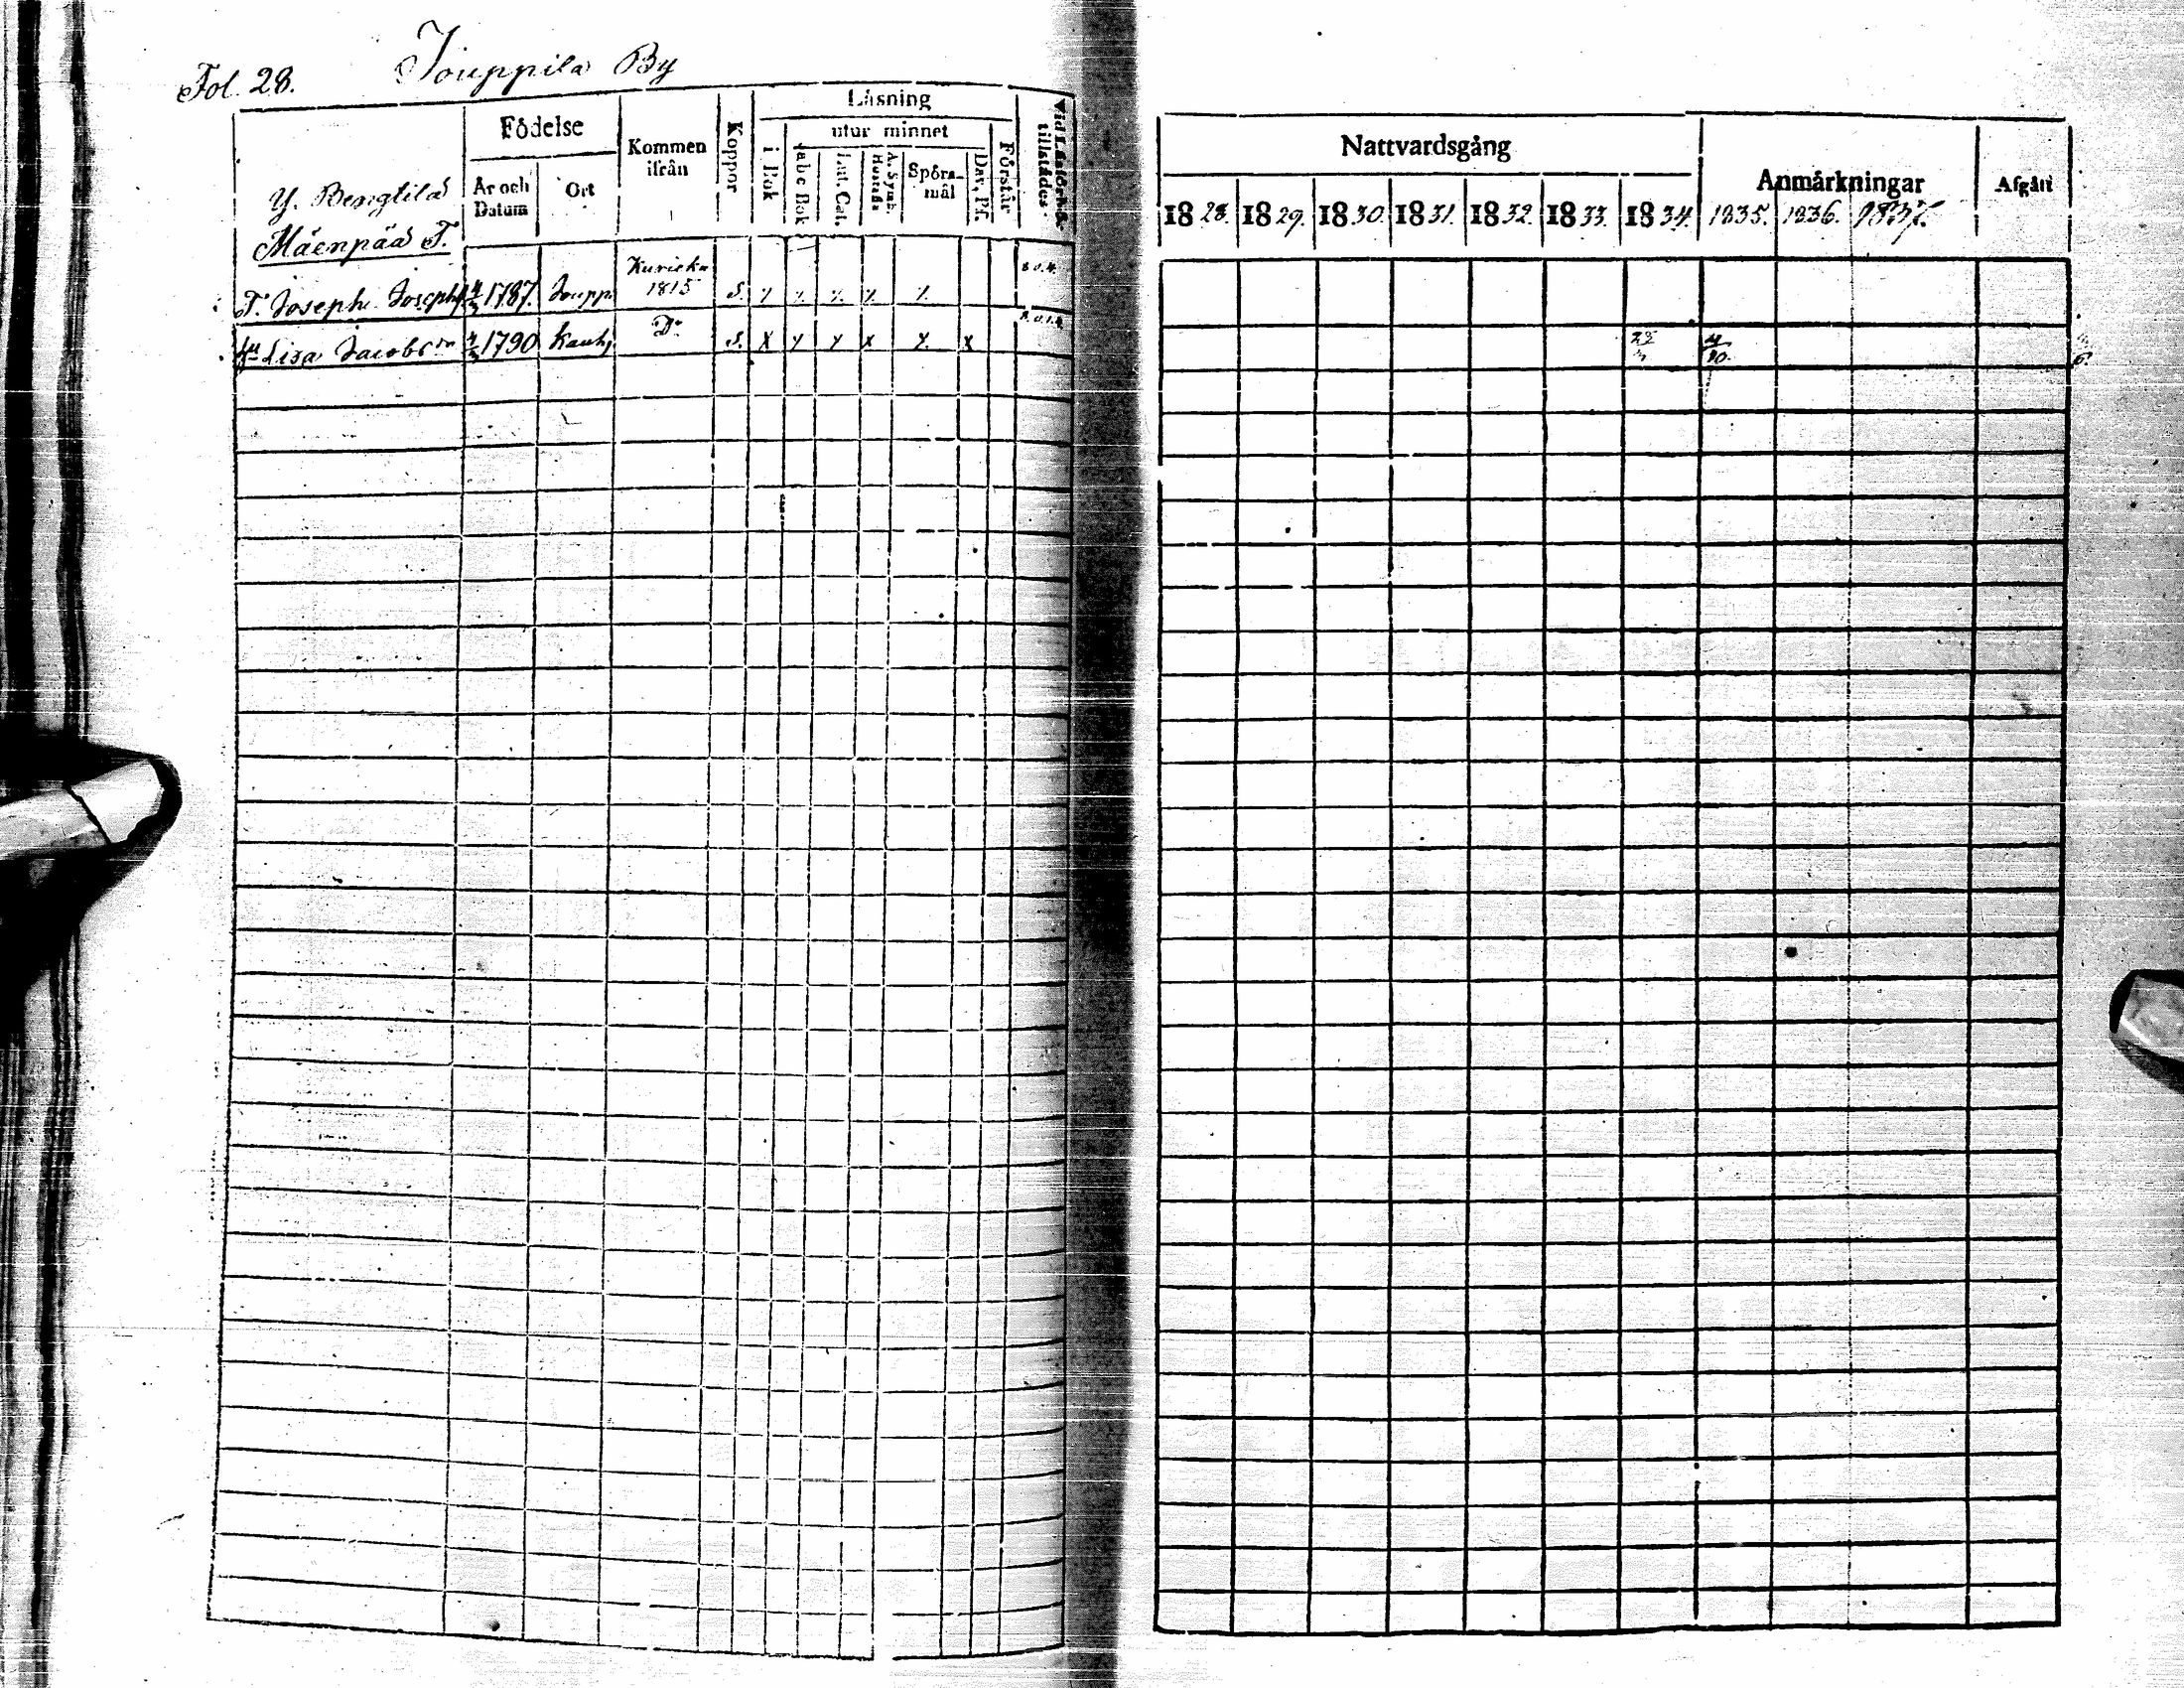 Fol. 28. Jouppila By
Y. Bengtila
Mäenpää T.
Födelse
År och Datum
Ort
Kommen ifrån
Koppor
Läsning
i Bok
utur minnet
abc Bok
Lut. Cat.
A. Symb. Hustafla
Spörsmål
Dav. Ps.
Förstår
tillstädes
T. Joseph Josephs 1787. Jouppi Kuricka 1815 S.
Hu Lisa Jacobsdr 1790 Kauhj Do S.
Nattvardsgång
1828. 1829. 1830. 1831. 1832. 1833. 1834.
Anmärkningar
1835. 1836. 1837.
Afgått